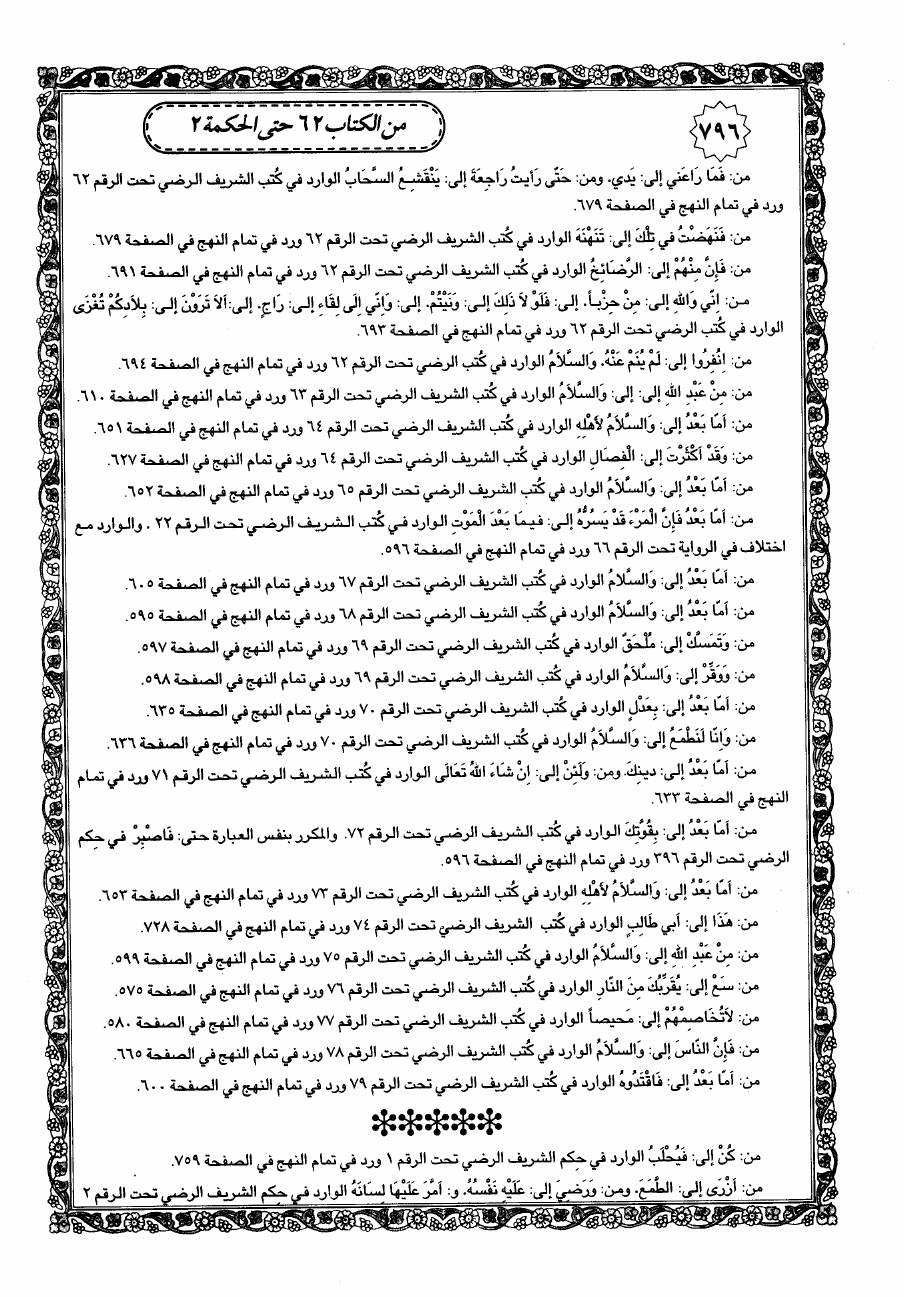 ٧٩٦
من الكتاب ٦٢ حتى الحكمة ٢
من: فَمَا رَاعَني إلى: يَدي. ومن: حَتَّى رَأيتُ رَاجِعَةَ إلى: يَنْقَشِـعُ السَّحَابُ الوارد في كُتب الشريف الرضي تحت الرقم ٦٢
ورد في تمام النهج في الصفحة ٦٧٩.
من: فَنَهَضْتُ في تِلْكَ إلى: تَنَهْنَهَ الوارد في كُتب الشريف الرضي تحت الرقم ٦٢ ورد في تمام النهج في الصفحة ٦٧٩.
من: فَإِنَّ مِنْهُمْ إلى: الرَّضَائِخُ الوارد في كُتب الشريف الرضي تحت الرقم ٦٢ ورد في تمام النهج في الصفحة ٦٩١.
مـن: إنّي وَاللهِ إلى: مِنْ حِزْبـاً. إلى: فَلَوْ لاَ ذَلِكَ إلـى: وَنَيْتُمْ. إلى: وَإنّي إلَى لِقَاءِ إلـى: رَاجٍ. إلى:ألاَ تَرَوْنَ إلـى: بِلاَدِكُمْ تُغْزَى
الوارد في كُتب الرضي تحت الرقم ٦٢ ورد في تمام النهج في الصفحة ٦٩٣.
من: اِنْفِرُوا إلى: لَمْ يُنَمْ عَنْهُ. وَالسَّلاَمُ الوارد في كُتب الشريف الرضي تحت الرقم ٦٢ ورد في تمام النهج في الصفحة ٦٩٤.
من: مِنْ عَبْدِ اللهِ إلى: إلى: وَالسَّلاَمُ الوارد في كُتب الشريف الرضي تحت الرقم ٦٣ ورد في تمام النهج في الصفحة ٦١٠.
من: أمَّا بَعْدُ إلى: وَالسَّلاَمُ لأَهْلِهِ الوارد في كُتب الشريف الرضي تحت الرقم ٦٤ ورد في تمام النهج في الصفحة ٦٥١.
من: وَقَدْ أكْثَرْتَ إلى: الْفِصَالِ الوارد في كُتب الشريف الرضي تحت الرقم ٦٤ ورد في تمام النهج في الصفحة ٦٢٧.
من: أمَّا بَعْدُ إلى: وَالسَّلاَمُ الوارد في كُتب الشريف الرضي تحت الرقم ٦٥ ورد في تمام النهج في الصفحة ٦٥٢.
من: أمَّا بَعْدُ فَإِنَّ الْمَرْءَ قَدْ يَسُرُّهُ إلـى: فيـمَا بَعْدَ الْمَوْتِ الـوارد فـي كُتب الـشريـف الرضـي تحـت الـرقـم ٢٢ ، والـوارد مـع
اختلاف في الرواية تحت الرقم ٦٦ ورد في تمام النهج في الصفحة ٥٩٦.
من: أمَّا بَعْدُ إلى: وَالسَّلاَمُ الوارد في كُتب الشريف الرضي تحت الرقم ٦٧ ورد في تمام النهج في الصفحة ٦٠٥.
من: أمَّا بَعْدُ إلى: وَالسَّلاَمُ الوارد في كُتب الشريف الرضي تحت الرقم ٦٨ ورد في تمام النهج في الصفحة ٥٩٥.
من: وَتَمَسَّكْ إلى: مُلْحَقٌ الوارد في كُتب الشريف الرضي تحت الرقم ٦٩ ورد في تمام النهج في الصفحة ٥٩٧.
من: وَوَقِّرْ إلى: وَالسَّلاَمُ الوارد في كُتب الشريف الرضي تحت الرقم ٦٩ ورد في تمام النهج في الصفحة ٥٩٨.
من: أمَّا بَعْدُ إلى: بِعَدْلٍ الوارد في كُتب الشريف الرضي تحت الرقم ٧٠ ورد في تمام النهج في الصفحة ٦٣٥.
من: وَإنَّا لَنَطْمَعُ إلى: وَالسَّلاَمُ الوارد في كُتب الشريف الرضي تحت الرقم ٧٠ ورد في تمام النهج في الصفحة ٦٣٦.
مـن: أمَّا بَعْدُ إلى: دينِكَ. ومن: وَلَئِنْ إلى: إنْ شَاءَ اللهُ تَعَالَى الـوارد في كُتب الـشريف الـرضي تحـت الرقـم ٧١ ورد في تمـام
النهج في الصفحة ٦٣٣.
من: أمَّا بَعْدُ إلى: بِقُوَّتِكَ الـوارد في كُتب الشريف الرضي تحت الرقم ٧٢. والمكرر بنفس العبارة حتى: فَاصْبِرْ في حِكم
الرضي تحت الرقم ٣٩٦ ورد في تمام النهج في الصفحة ٥٩٦.
من: أمَّا بَعْدُ إلى: وَالسَّلاَمُ لأَهْلِهِ الوارد في كُتب الشريف الرضي تحت الرقم ٧٣ ورد في تمام النهج في الصفحة ٦٥٣.
من: هَذَا إلى: أبي طَالِبٍ الوارد في كُتب الشريف الرضيّ تحت الرقم ٧٤ ورد في تمام النهج في الصفحة ٧٢٨.
من: مِنْ عَبْدِ اللهِ إلى: وَالسَّلاَمُ الوارد في كُتب الشريف الرضي تحت الرقم ٧٥ ورد في تمام النهج في الصفحة ٥٩٩.
من: سَعْ إلى: يُقَرِّبُكَ مِنَ النَّارِ الوارد في كُتب الشريف الرضي تحت الرقم ٧٦ ورد في تمام النهج في الصفحة ٥٧٥.
من: لاَتُخَاصِمْهُمْ إلى: مَحيصاً الوارد في كُتب الشريف الرضي تحت الرقم ٧٧ ورد في تمام النهج في الصفحة ٥٨٠.
من: فَإِنَّ النَّاسَ إلى: وَالسَّلاَمُ الوارد في كُتب الشريف الرضي تحت الرقم ٧٨ ورد في تمام النهج في الصفحة ٦٦٥.
من: أمَّا بَعْدُ إلى: فَاقْتَدُوهُ الوارد في كُتب الشريف الرضي تحت الرقم ٧٩ ورد في تمام النهج في الصفحة ٦٠٠.
*****
من: كُنْ إلى: فَيُحْلَبُ الوارد في حِكم الشريف الرضي تحت الرقم ١ ورد في تمام النهج في الصفحة ٧٥٩.
من: أزْرَى إلى: الطَّمَعَ. ومن: وَرَضِيَ إلى: عَلَيْهِ نَفْسُهُ. و: أمَّرَ عَلَيْهَا لِسَانَهُ الوارد في حِكم الشريف الرضي تحت الرقم ٢